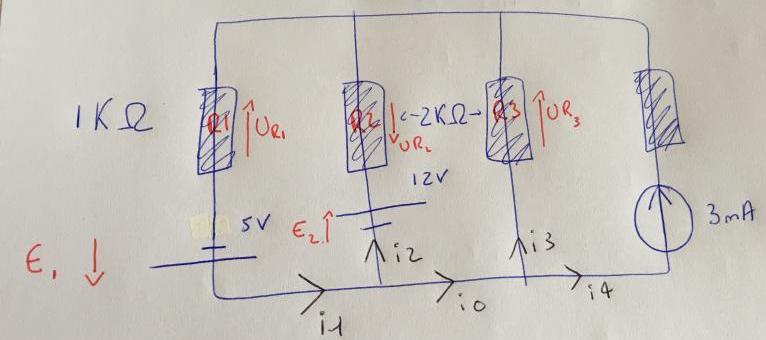 1KΩ
R1
UR1
R2
UR2
<-2KΩ->
R3
UR3
12V
5V
E1
E2
3mA
i2
i3
i1
i0
i4